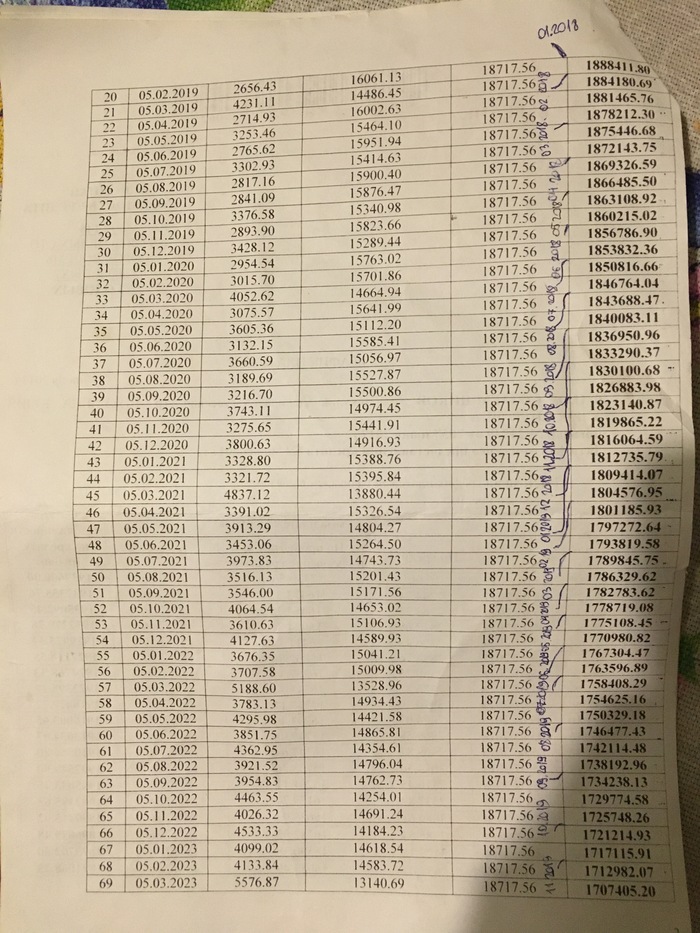 01.2018
20 05.02.2019 2656.43 16061.13 18717.56 1888411.80
21 05.03.2019 4231.11 14486.45 18717.56 1884180.69
22 05.04.2019 2714.93 16002.63 18717.56 1881465.76
23 05.05.2019 3253.46 15464.10 18717.56 1878212.30
24 05.06.2019 2765.62 15951.94 18717.56 1875446.68
25 05.07.2019 3302.93 15414.63 18717.56 1872143.75
26 05.08.2019 2817.16 15900.40 18717.56 1869326.59
27 05.09.2019 2841.09 15876.47 18717.56 1866485.50
28 05.10.2019 3376.58 15340.98 18717.56 1863108.92
29 05.11.2019 2893.90 15823.66 18717.56 1860215.02
30 05.12.2019 3428.12 15289.44 18717.56 1856786.90
31 05.01.2020 2954.54 15763.02 18717.56 1853832.36
32 05.02.2020 3015.70 15701.86 18717.56 1850816.66
33 05.03.2020 4052.62 14664.94 18717.56 1846764.04
34 05.04.2020 3075.57 15641.99 18717.56 1843688.47
35 05.05.2020 3605.36 15112.20 18717.56 1840083.11
36 05.06.2020 3132.15 15585.41 18717.56 1836950.96
37 05.07.2020 3660.59 15056.97 18717.56 1833290.37
38 05.08.2020 3189.69 15527.87 18717.56 1830100.68
39 05.09.2020 3216.70 15500.86 18717.56 1826883.98
40 05.10.2020 3743.11 14974.45 18717.56 1823140.87
41 05.11.2020 3275.65 15441.91 18717.56 1819865.22
42 05.12.2020 3800.63 14916.93 18717.56 1816064.59
43 05.01.2021 3328.80 15388.76 18717.56 1812735.79
44 05.02.2021 3321.72 15395.84 18717.56 1809414.07
45 05.03.2021 4837.12 13880.44 18717.56 1804576.95
46 05.04.2021 3391.02 15326.54 18717.56 1801185.93
47 05.05.2021 3913.29 14804.27 18717.56 1797272.64
48 05.06.2021 3453.06 15264.50 18717.56 1793819.58
49 05.07.2021 3973.83 14743.73 18717.56 1789845.75
50 05.08.2021 3516.13 15201.43 18717.56 1786329.62
51 05.09.2021 3546.00 15171.56 18717.56 1782783.62
52 05.10.2021 4064.54 14653.02 18717.56 1778719.08
53 05.11.2021 3610.63 15106.93 18717.56 1775108.45
54 05.12.2021 4127.63 14589.93 18717.56 1770980.82
55 05.01.2022 3676.35 15041.21 18717.56 1767304.47
56 05.02.2022 3707.58 15009.98 18717.56 1763596.89
57 05.03.2022 5188.60 13528.96 18717.56 1758408.29
58 05.04.2022 3783.13 14934.43 18717.56 1754625.16
59 05.05.2022 4295.98 14421.58 18717.56 1750329.18
60 05.06.2022 3851.75 14865.81 18717.56 1746477.43
61 05.07.2022 4362.95 14354.61 18717.56 1742114.48
62 05.08.2022 3921.52 14796.04 18717.56 1738192.96
63 05.09.2022 3954.83 14762.73 18717.56 1734238.13
64 05.10.2022 4463.55 14254.01 18717.56 1729774.58
65 05.11.2022 4026.32 14691.24 18717.56 1725748.26
66 05.12.2022 4533.33 14184.23 18717.56 1721214.93
67 05.01.2023 4099.02 14618.54 18717.56 1717115.91
68 05.02.2023 4133.84 14583.72 18717.56 1712982.07
69 05.03.2023 5576.87 13140.69 18717.56 1707405.20
02.2018
03.2018
06.2018
07.2018
08.2018
09.2018
10.2018
11.2018
12.2018
01.2019
07.2019
08.2019
09.2019
10.2019
11.2019